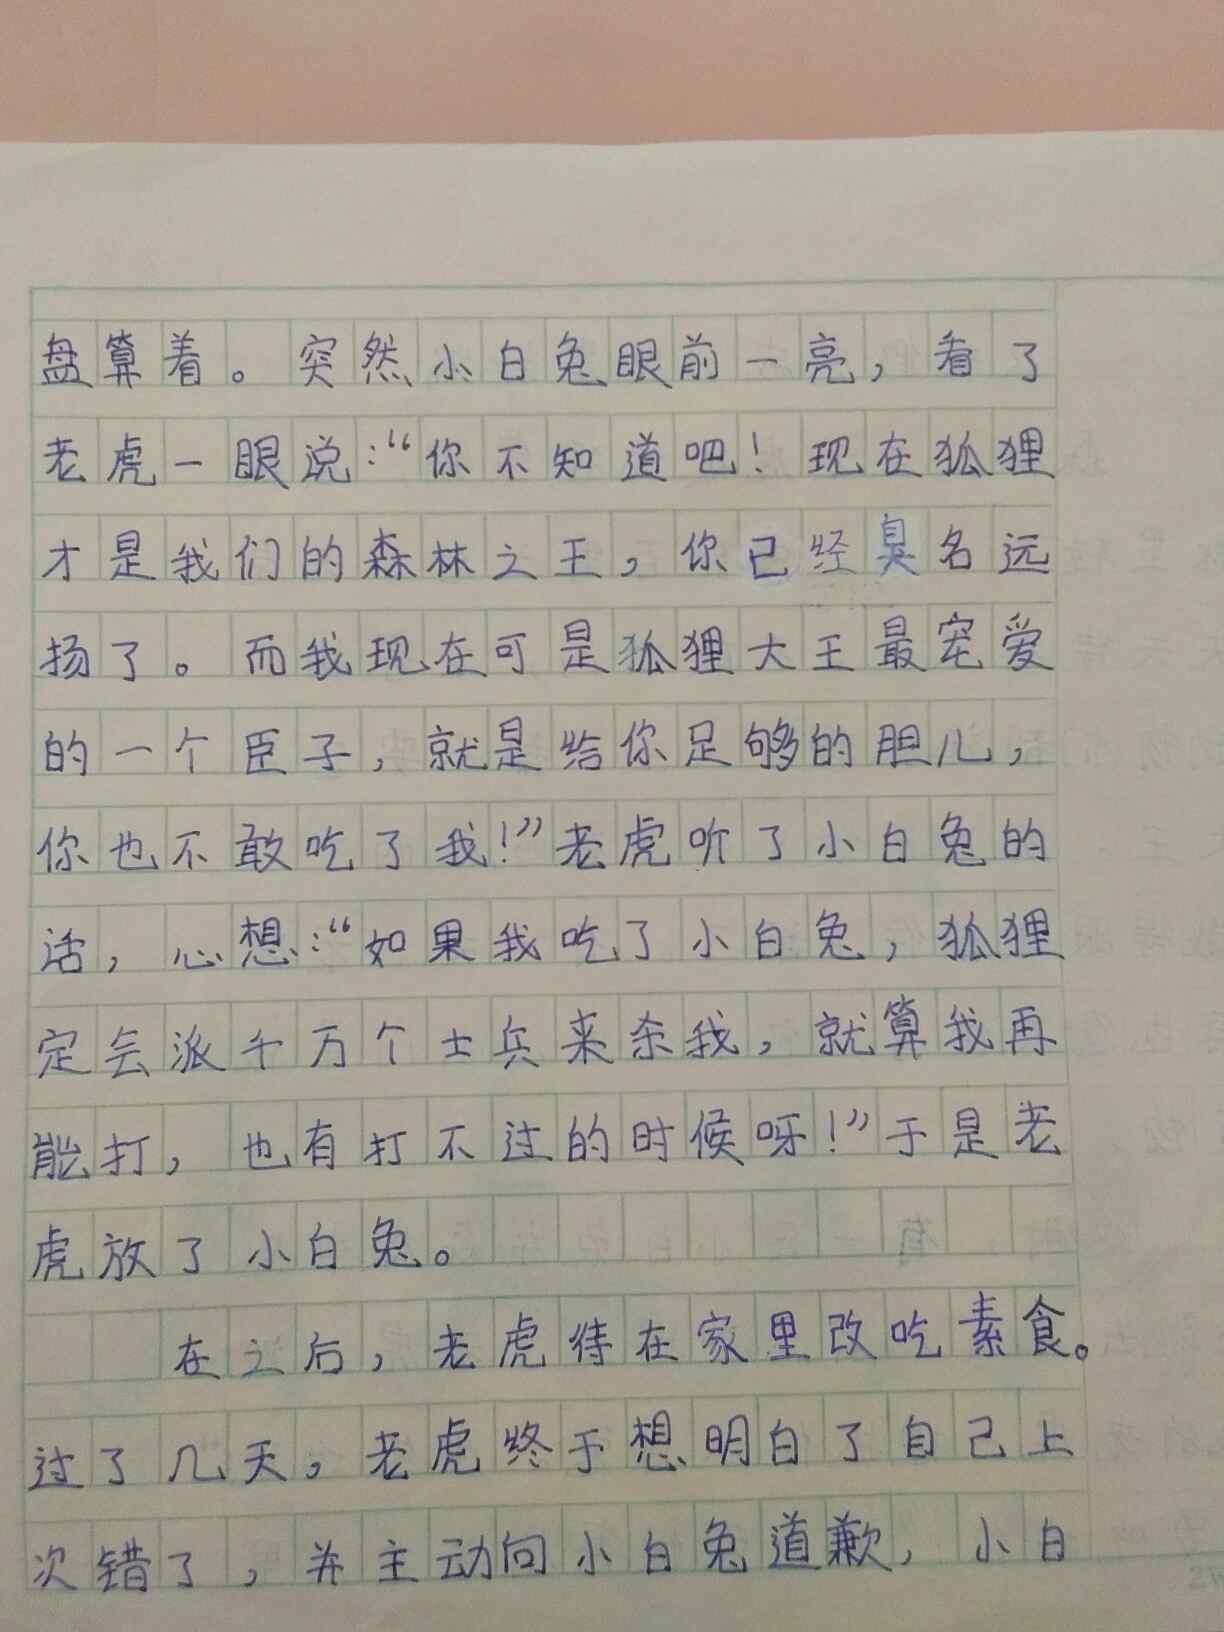 盘算着。突然小白兔眼前一亮，看了
老虎一眼说：“你不知道吧！现在狐狸
才是我们的森林之王，你已经臭名远
扬了。而我现在可是狐狸大王最宠爱
的一个臣子，就是给你足够的胆儿，
你也不敢吃了我！”老虎听了小白兔的
话，心想：“如果我吃了小白兔，狐狸
定会派千万个士兵来杀我，就算我再
能打，也有打不过的时候呀！”于是老
虎放了小白兔。
在之后，老虎待在家里改吃素食。
过了几天，老虎终于想明白了自己上
次错了，并主动向小白兔道歉，小白